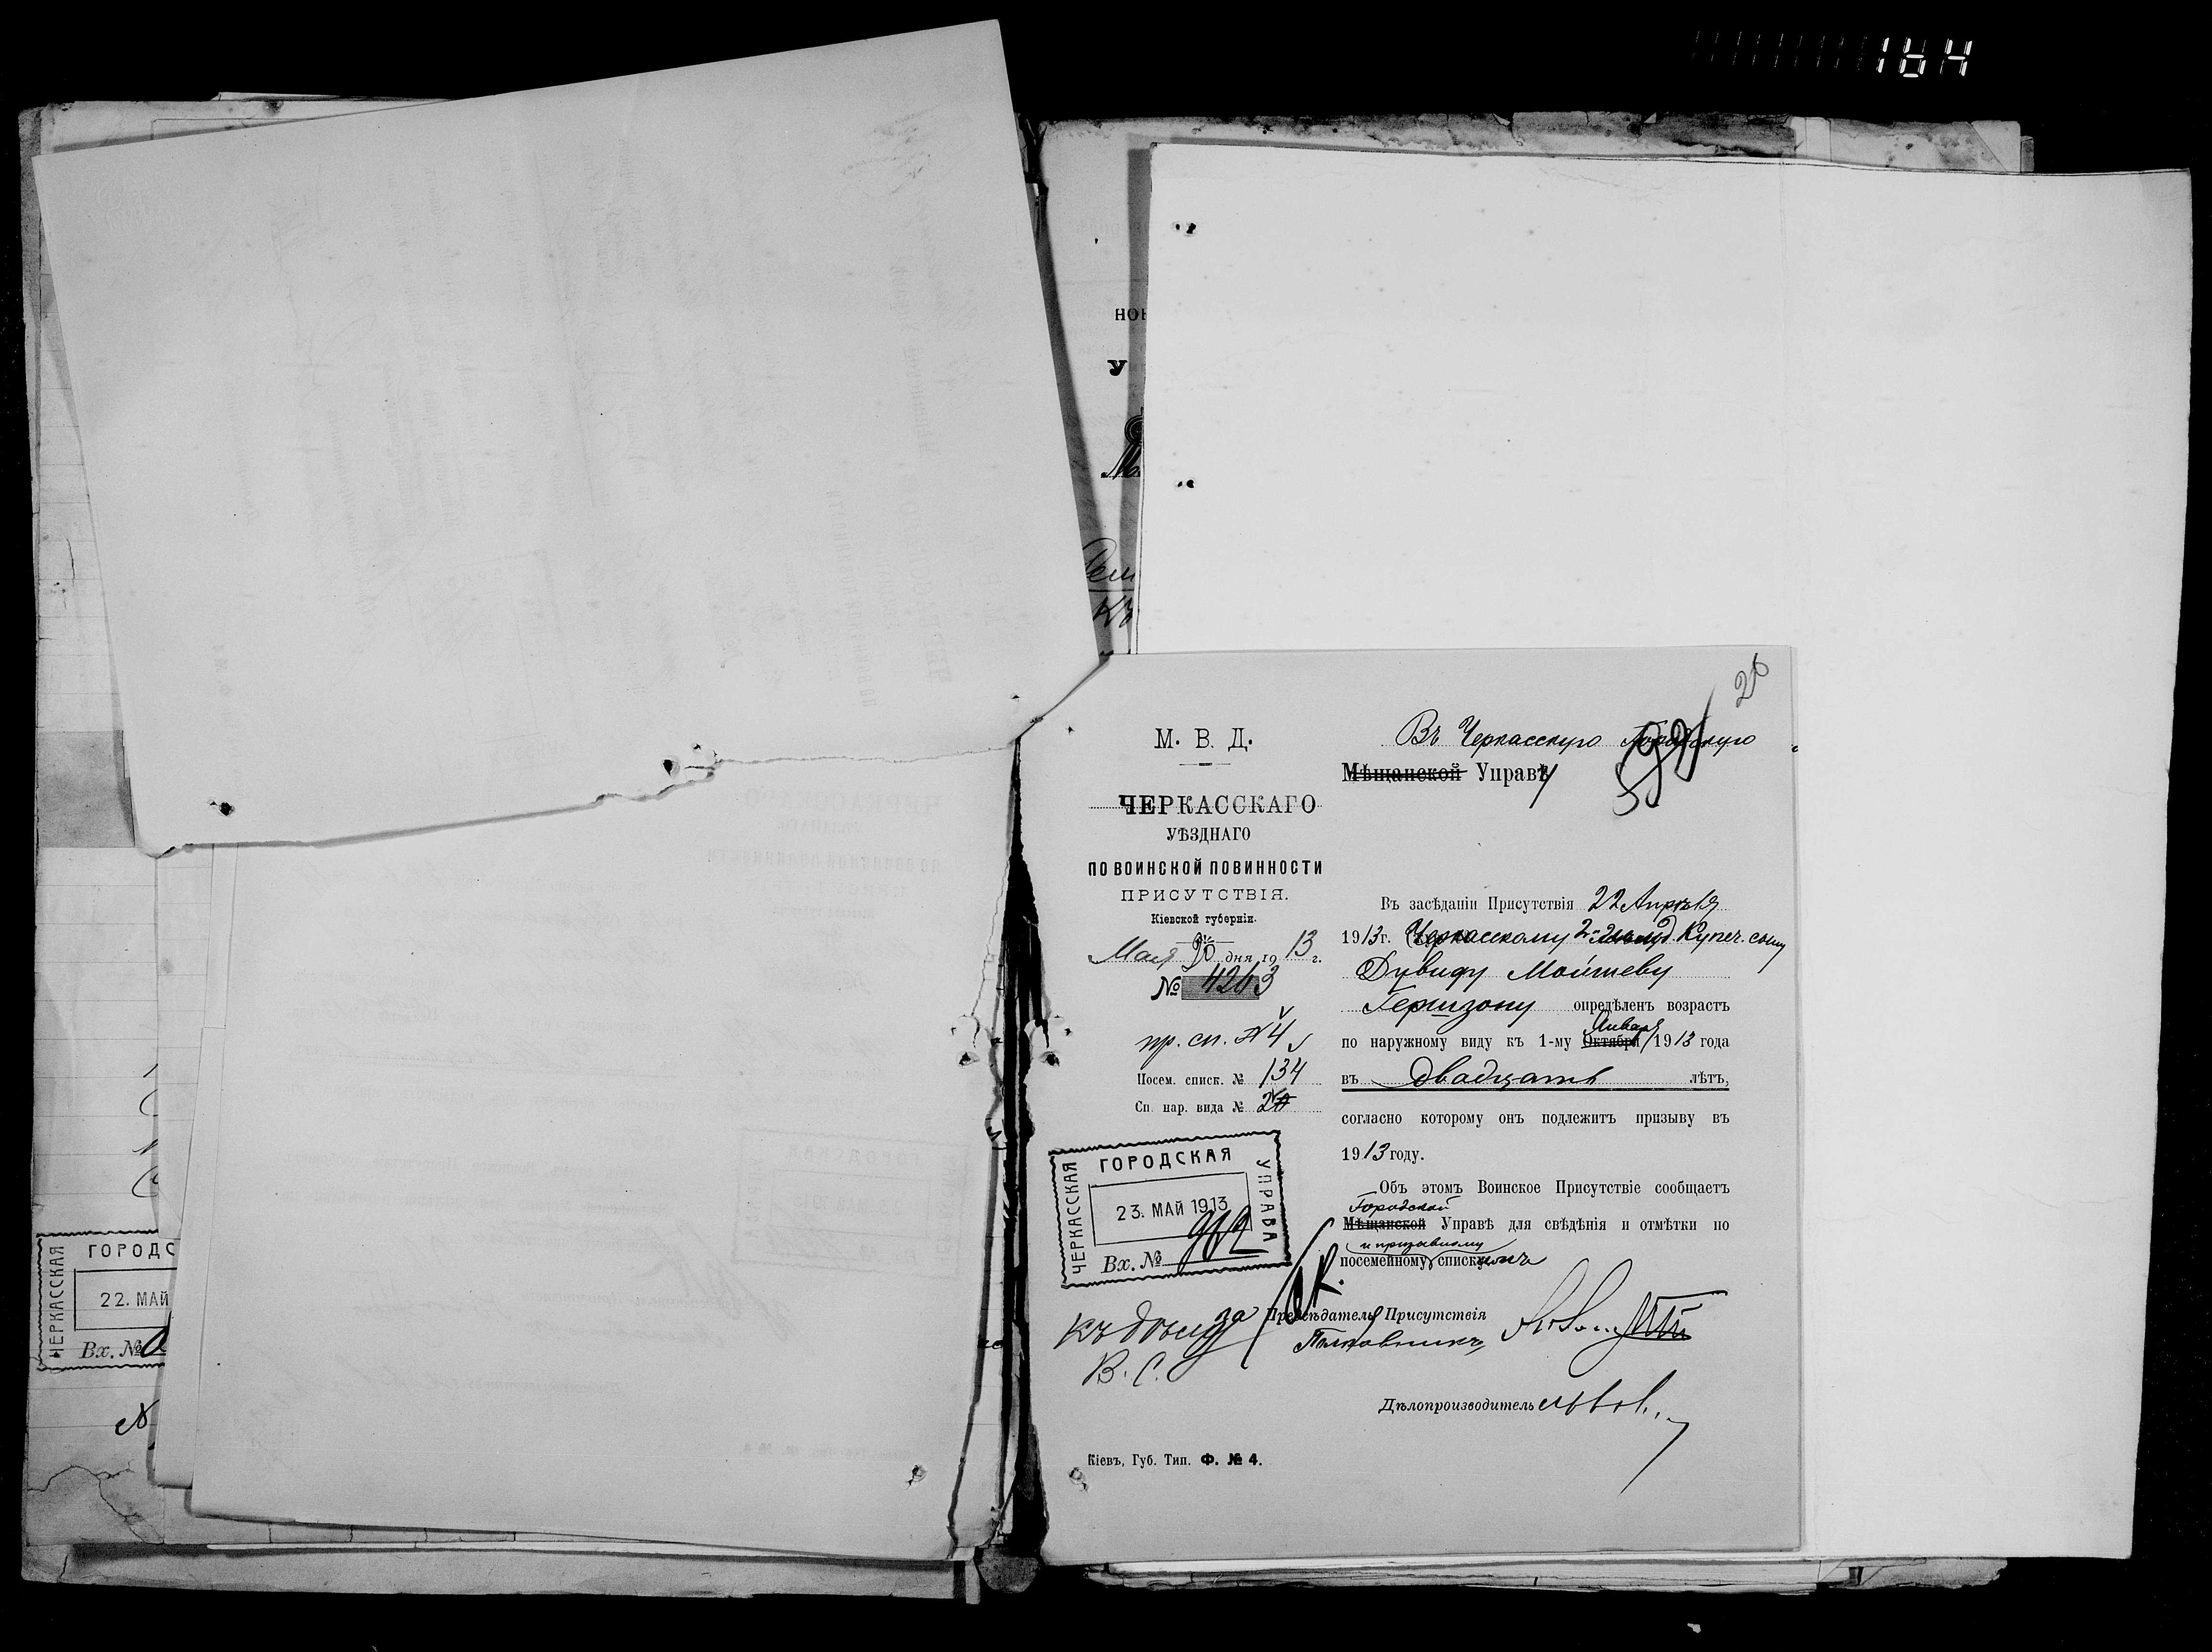 164
НОВ
У
26
М. В. Д.
ЧЕРКАССКАГО
УѢЗДНАГО
ПО ВОИНСКОЙ ПОВИННОСТИ
ПРИСУТСТВІЯ.
Кіевской губерніи.
Мая 20 дня 1913 г.
№ 4263
пр. сп. № 4
Посем. списк. № 134
Сп. нар. вида №
ЧЕРКАССКАЯ ГОРОДСКАЯ УПРАВА
23. МАЙ 1913
Вх. № 982
къ дѣлу
В. С.
Кіевъ, Губ. Тип. Ф. № 4.
Въ Черкасскую Городскую
Мѣщанской Управу
Въ засѣданіи Присутствія 22 Апрѣля
1913 г. Черкасскому 2 Купеч. сыну
Дувиду Мойшеву
Гершзону опредѣленъ возрастъ
Января
по наружному виду къ 1-му Октября 1913 года
въ двадцать лѣтъ,
согласно которому онъ подлежитъ призыву въ
1913 году.
Объ этомъ Воинское Присутствіе сообщаетъ
Городской
Мѣщанской Управѣ для свѣдѣнія и отмѣтки по
и призывному
посемейному спискамъ
Предсѣдатель Присутствія
Полковникъ
Дѣлопроизводитель
ЧЕРКАССКАЯ ГОРОДС
22. МАЙ
Вх. №